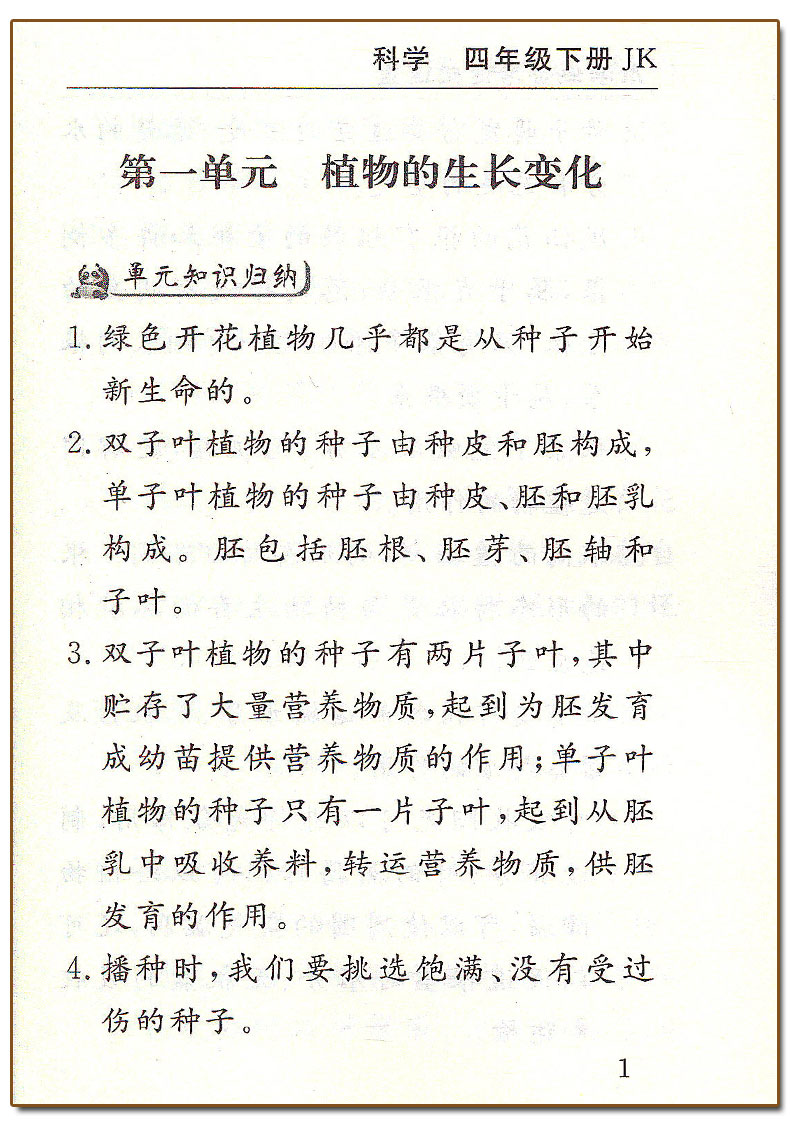 科学 四年级下册JK
第一单元 植物的生长变化
单元知识归纳
1. 绿色开花植物几乎都是从种子开始
新生命的。
2. 双子叶植物的种子由种皮和胚构成,
单子叶植物的种子由种皮、胚和胚乳
构成。胚包括胚根、胚芽、胚轴和
子叶。
3. 双子叶植物的种子有两片子叶,其中
贮存了大量营养物质,起到为胚发育
成幼苗提供营养物质的作用;单子叶
植物的种子只有一片子叶,起到从胚
乳中吸收养料,转运营养物质,供胚
发育的作用。
4. 播种时,我们要挑选饱满、没有受过
伤的种子。
1